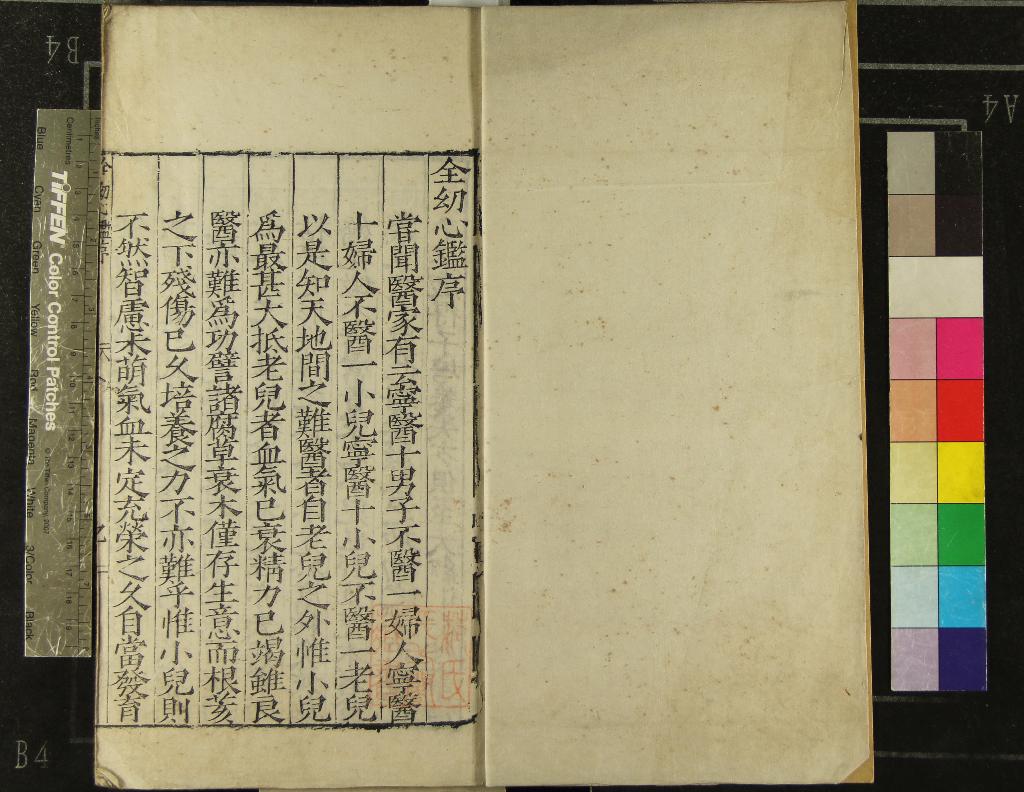 全幼心鑑序
甞聞醫家有云寧醫十男子不醫一婦人寧醫
十婦人不醫一小兒寧醫十小兒不醫一老兒
以是知天地間之難醫者自老兒之外惟小兒
爲最甚大抵老兒者血氣已衰精力已竭雖良
醫亦難爲功譬諸腐草衰木僅存生意而根荄
之下殘傷已久培養之力不亦難乎惟小兒則
不然智慮未萌氣血未定充榮之久自當發育
B4
A4
B4
Centimetres
Inches
TIFFEN Color Control Patches
Blue
Cyan
Green
Yellow
Red
Magenta
White
3/Color
Black